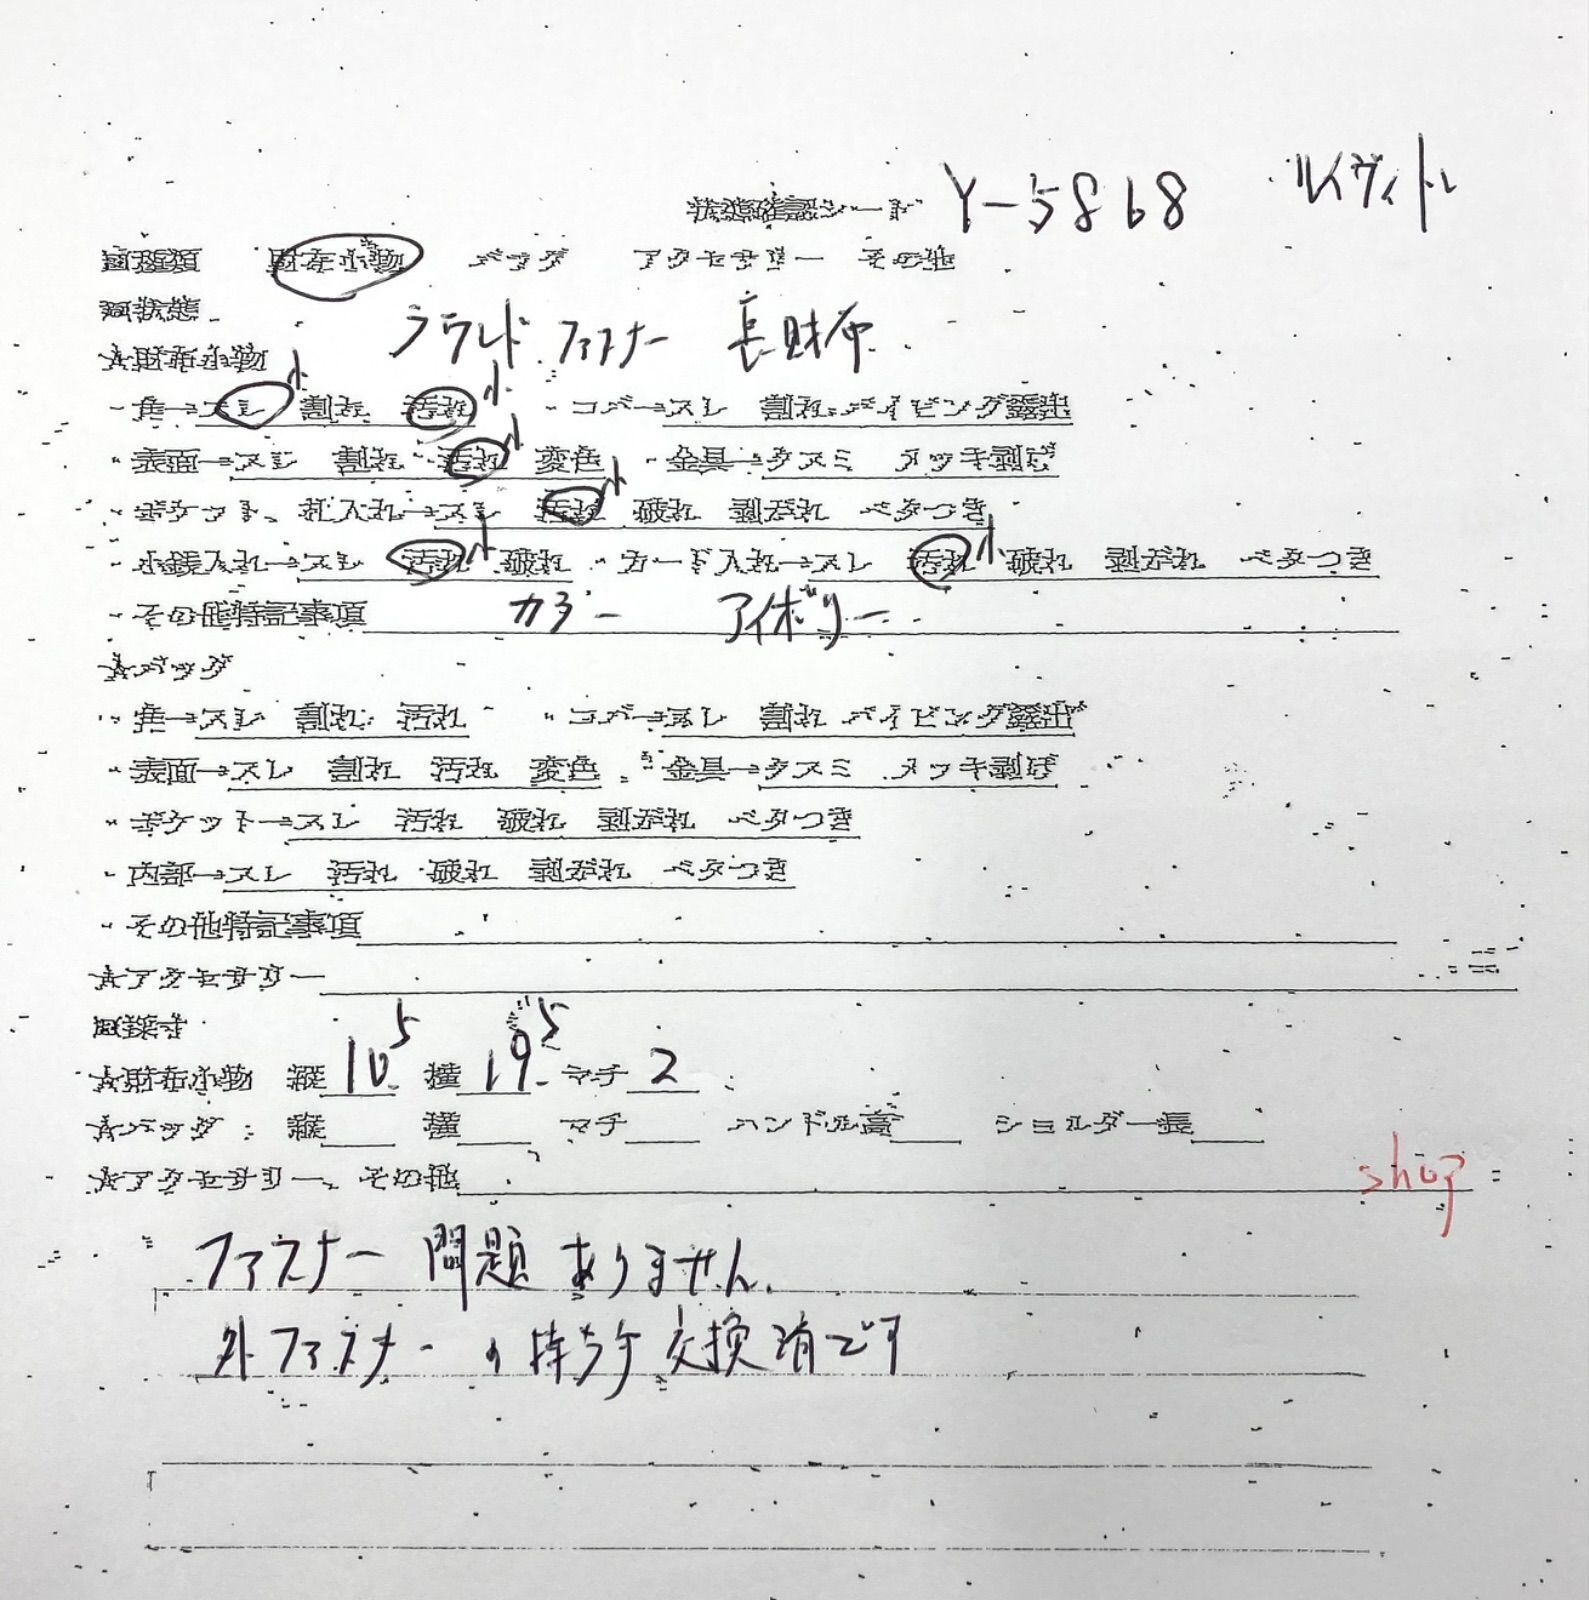 状態確認シート Y-5868 ルイヴィトン
財布小物 バッグ アクセサリー その他
状態
ラウンド ファスナー 長財布
☆財布小物
・角→スレ小 割れ 汚れ小 ・コバ→スレ 割れ パイピング露出
・表面→スレ 割れ 汚れ小 変色 ・金具→クスミ メッキ剥げ
・ポケット、札入れ→スレ 汚れ小 破れ 剥がれ ベタつき
・小銭入れ→スレ 汚れ小 破れ ・カード入れ→スレ 汚れ小 破れ 剥がれ ベタつき
・その他特記事項 カラー アイボリー
☆バッグ
・角→スレ 割れ 汚れ ・コバ→スレ 割れ パイピング露出
・表面→スレ 割れ 汚れ 変色 ・金具→クスミ メッキ剥げ
・ポケット→スレ 汚れ 破れ 剥がれ ベタつき
・内部→スレ 汚れ 破れ 剥がれ ベタつき
・その他特記事項
☆アクセサリー
採寸
☆財布小物 縦 10.5 横 19.5 マチ 2
☆バッグ 縦 横 マチ ハンドル高 ショルダー長
☆アクセサリー、その他
shop
ファスナー 問題ありません.
外ファスナーの持ち手 交換済です